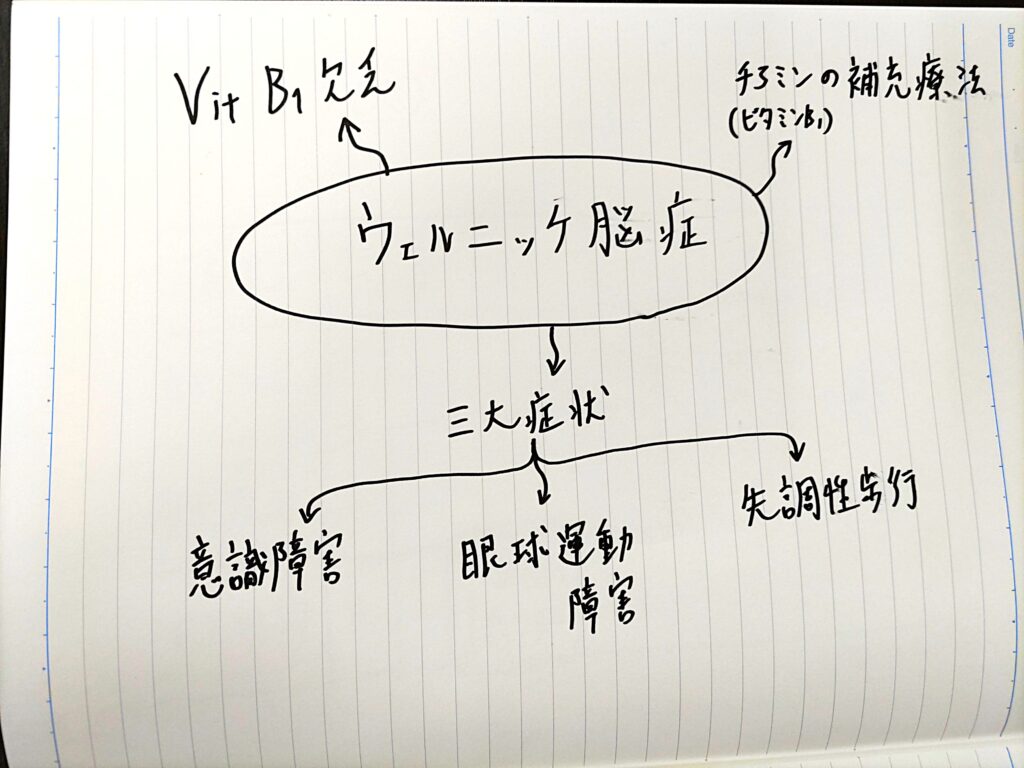 Vit B1 欠乏
チアミンの補充療法
(ビタミンB1)
ウェルニッケ脳症
三大症状
意識障害
眼球運動
障害
失調性歩行
Date